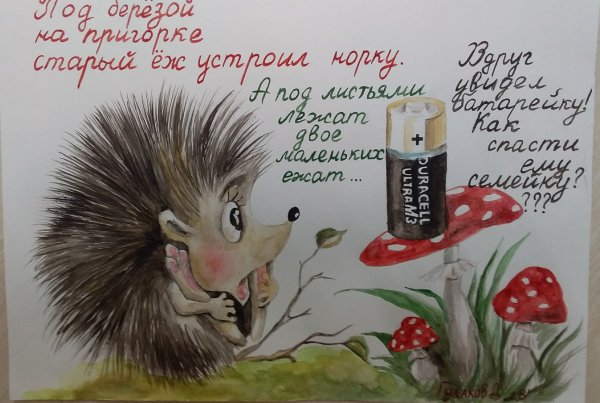 Под берёзой
на пригорке
старый ёж устроил норку.
А под листьями
лежат
двое
маленьких
ежат...
Вдруг
увидел
батарейку!
Как
спасти
ему
семейку?
???
+
DURACELL
ULTRA M3